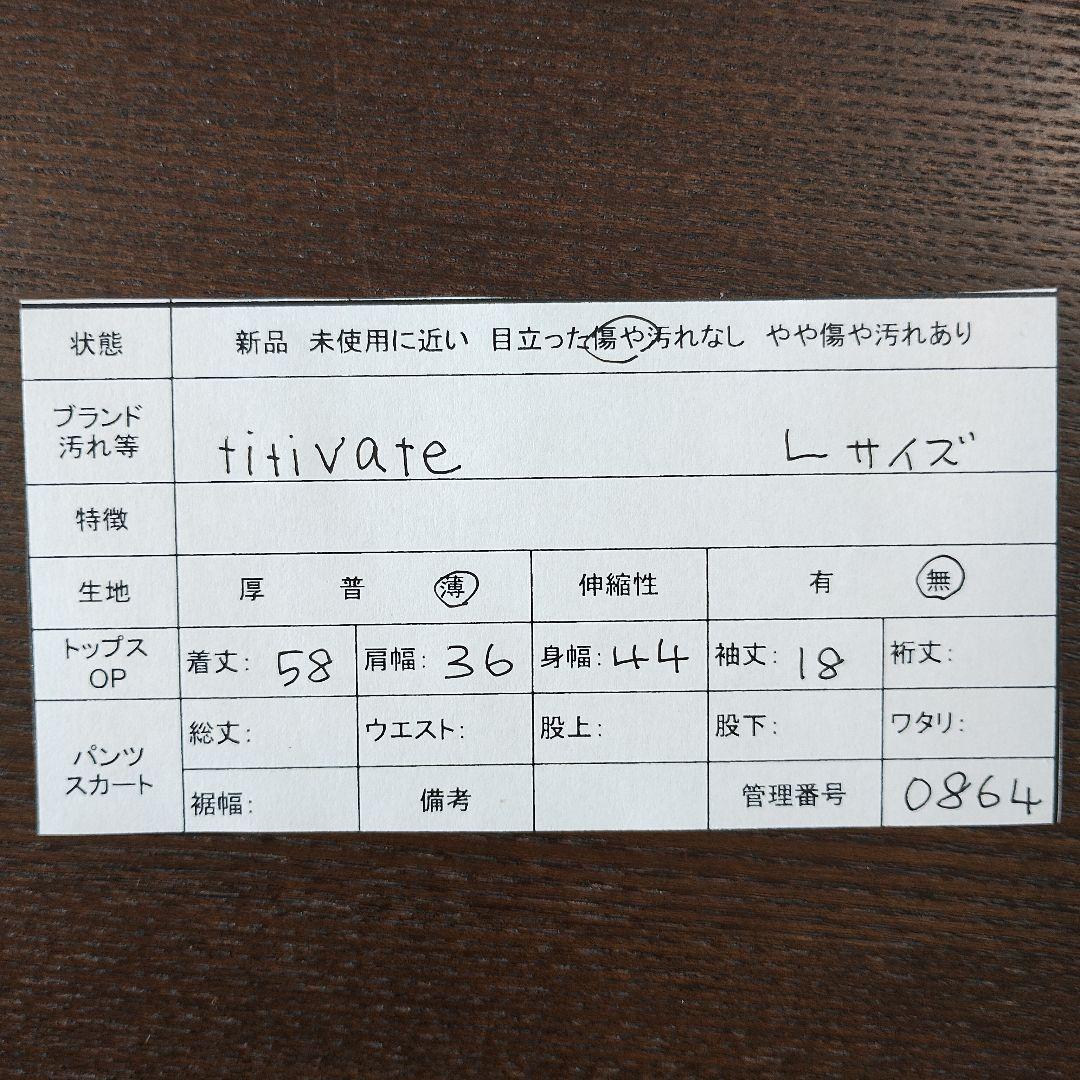 状態 新品 未使用に近い 目立った傷や汚れなし やや傷や汚れあり
ブランド
汚れ等 titivate Lサイズ
特徴
生地 厚 普 薄 伸縮性 有 無
トップス
OP 着丈: 58 肩幅: 36 身幅: 44 袖丈: 18 裄丈:
パンツ
スカート 総丈: ウエスト: 股上: 股下: ワタリ:
裾幅: 備考 管理番号 0864